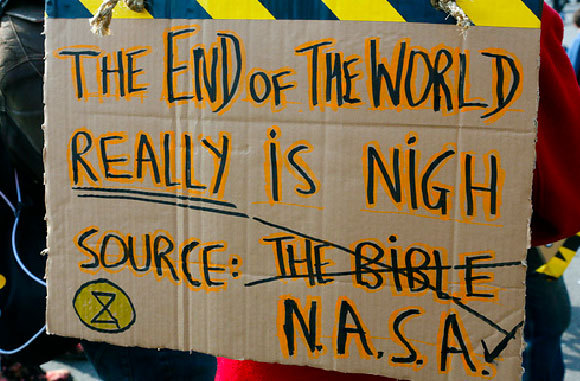 THE END OF THE WORLD
REALLY iS NiGH
SOURCE: THE BiBLE
N.A.S.A.